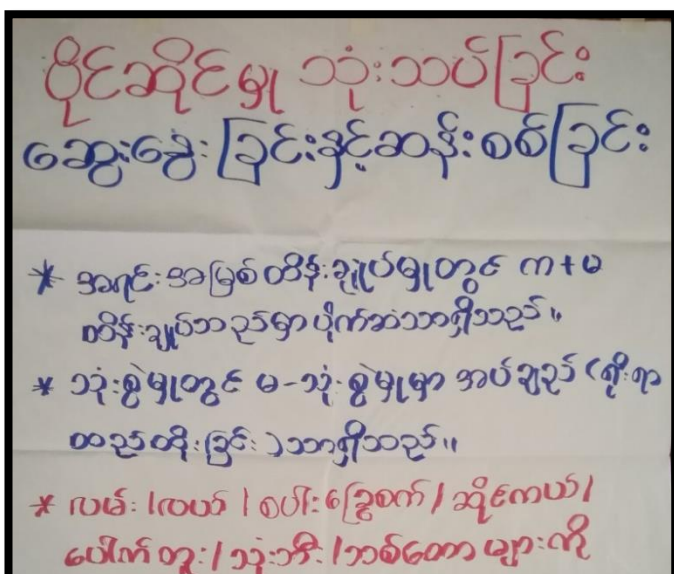 ပိုင်ဆိုင်မှု သုံးသပ်ခြင်း
ဆွေးနွေးခြင်းနှင့်ဆန်းစစ်ခြင်း
* အရင်းအမြစ်ထိန်းချုပ်မှုတွင် က+မ
ထိန်းချုပ်သည်မှာ ပိုက်ဆံသာရှိသည်။
* သုံးစွဲမှုတွင် မ-သုံးစွဲမှုမှာ အပ်ချည် (ရိုးရာ
ထည်ထိုးခြင်း) သာရှိသည်။
* လမ်း/လယ်/စပါးခြွေစက်/ဆိုင်ကယ်/
ပေါက်တူး/သုံးဘီး/သစ်တော များကို